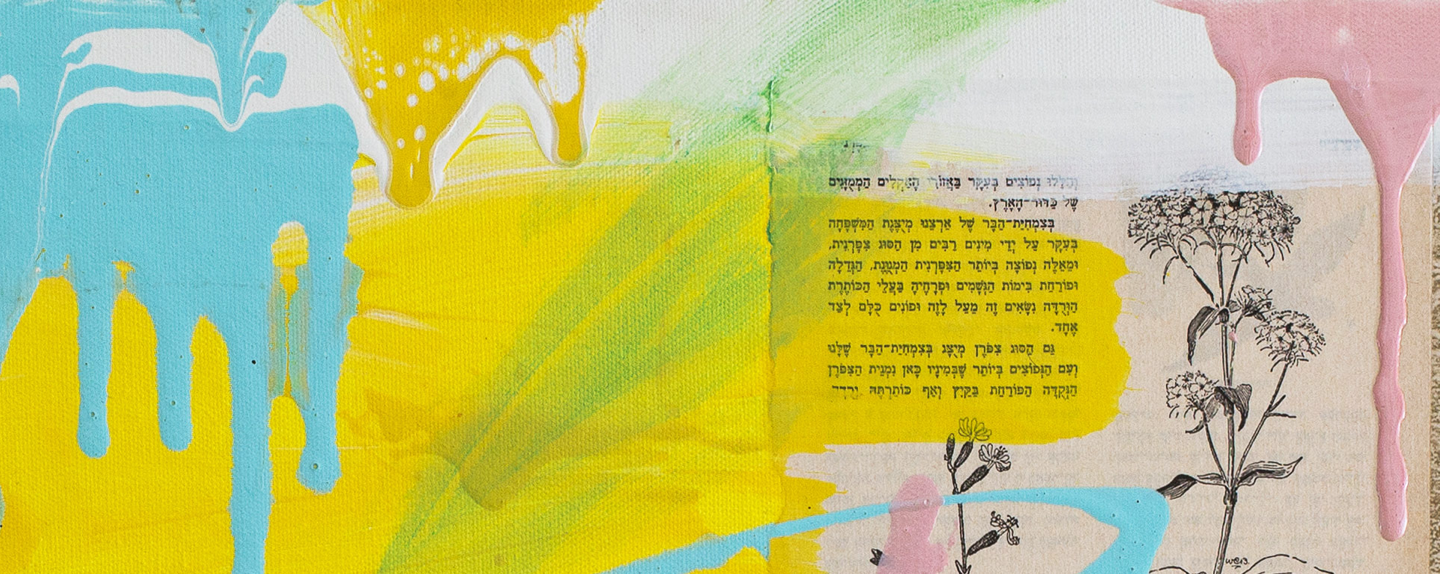 וְהַלָּלוּ נְפוֹצִים בְּעִקָּר בַּאֲזוֹרֵי הָאַקְלִים הַמְמֻזָּגִים
שֶׁל כַּדּוּר־הָאָרֶץ.
בְּצִמְחִיַּת־הַבָּר שֶׁל אַרְצֵנוּ מְיֻצֶּגֶת הַמִּשְׁפָּחָה
בְּעִקָּר עַל יְדֵי מִינִים רַבִּים מִן הַסּוּג צִפָּרְנִית,
וּמֵאֵלֶּה נְפוֹצָה בְּיוֹתֵר הַצִּפָּרְנִית הַמְגֻוֶּנֶת, הַגְּדֵלָה
וּפוֹרַחַת בִּימוֹת הַגְּשָׁמִים וּפְרָחֶיהָ בַּעֲלֵי הַכּוֹתֶרֶת
הַוְּרֻדָּה נִשָּׂאִים זֶה מֵעַל לָזֶה וּפוֹנִים כֻּלָּם לְצַד
אֶחָד.
גַּם הַסּוּג צִפֹּרֶן מְיֻצָּג בְּצִמְחִיַּת־הַבָּר שֶׁלָּנוּ
וְעִם הַנְּפוֹצִים בְּיוֹתֵר שֶׁבְּמִינָיו כָּאן נִמְנֵית הַצִּפֹּרֶן
הַנְּקֻדָּה הַפּוֹרַחַת בַּקַּיִץ וְאַף כּוֹתַרְתָּהּ וְרֻדָּה־